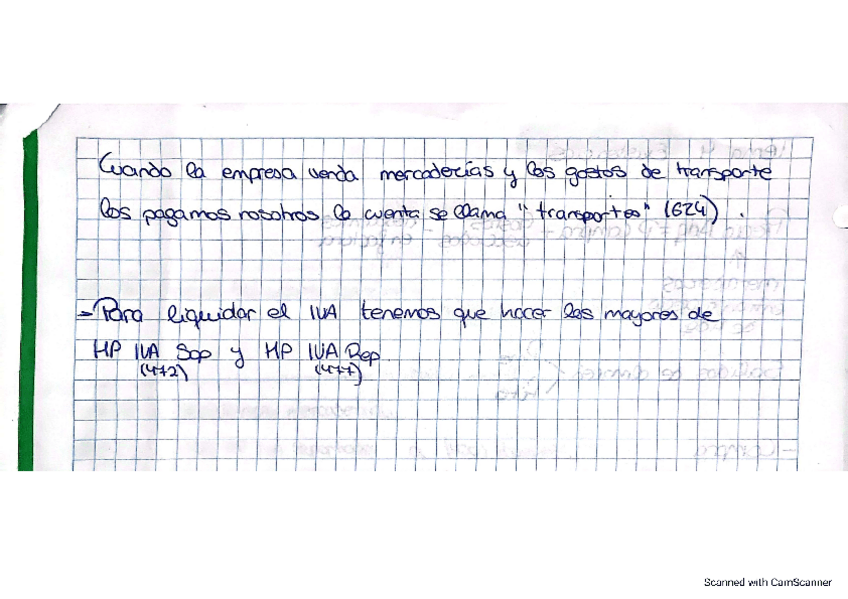 Cuando la empresa venda mercaderías y los gastos de transporte
los pagamos nosotros la cuenta se llama "transportes" (624).
- Para liquidar el IVA tenemos que hacer los mayores de
HP IVA Sop y HP IVA Rep
(472) (477)
Scanned with CamScanner